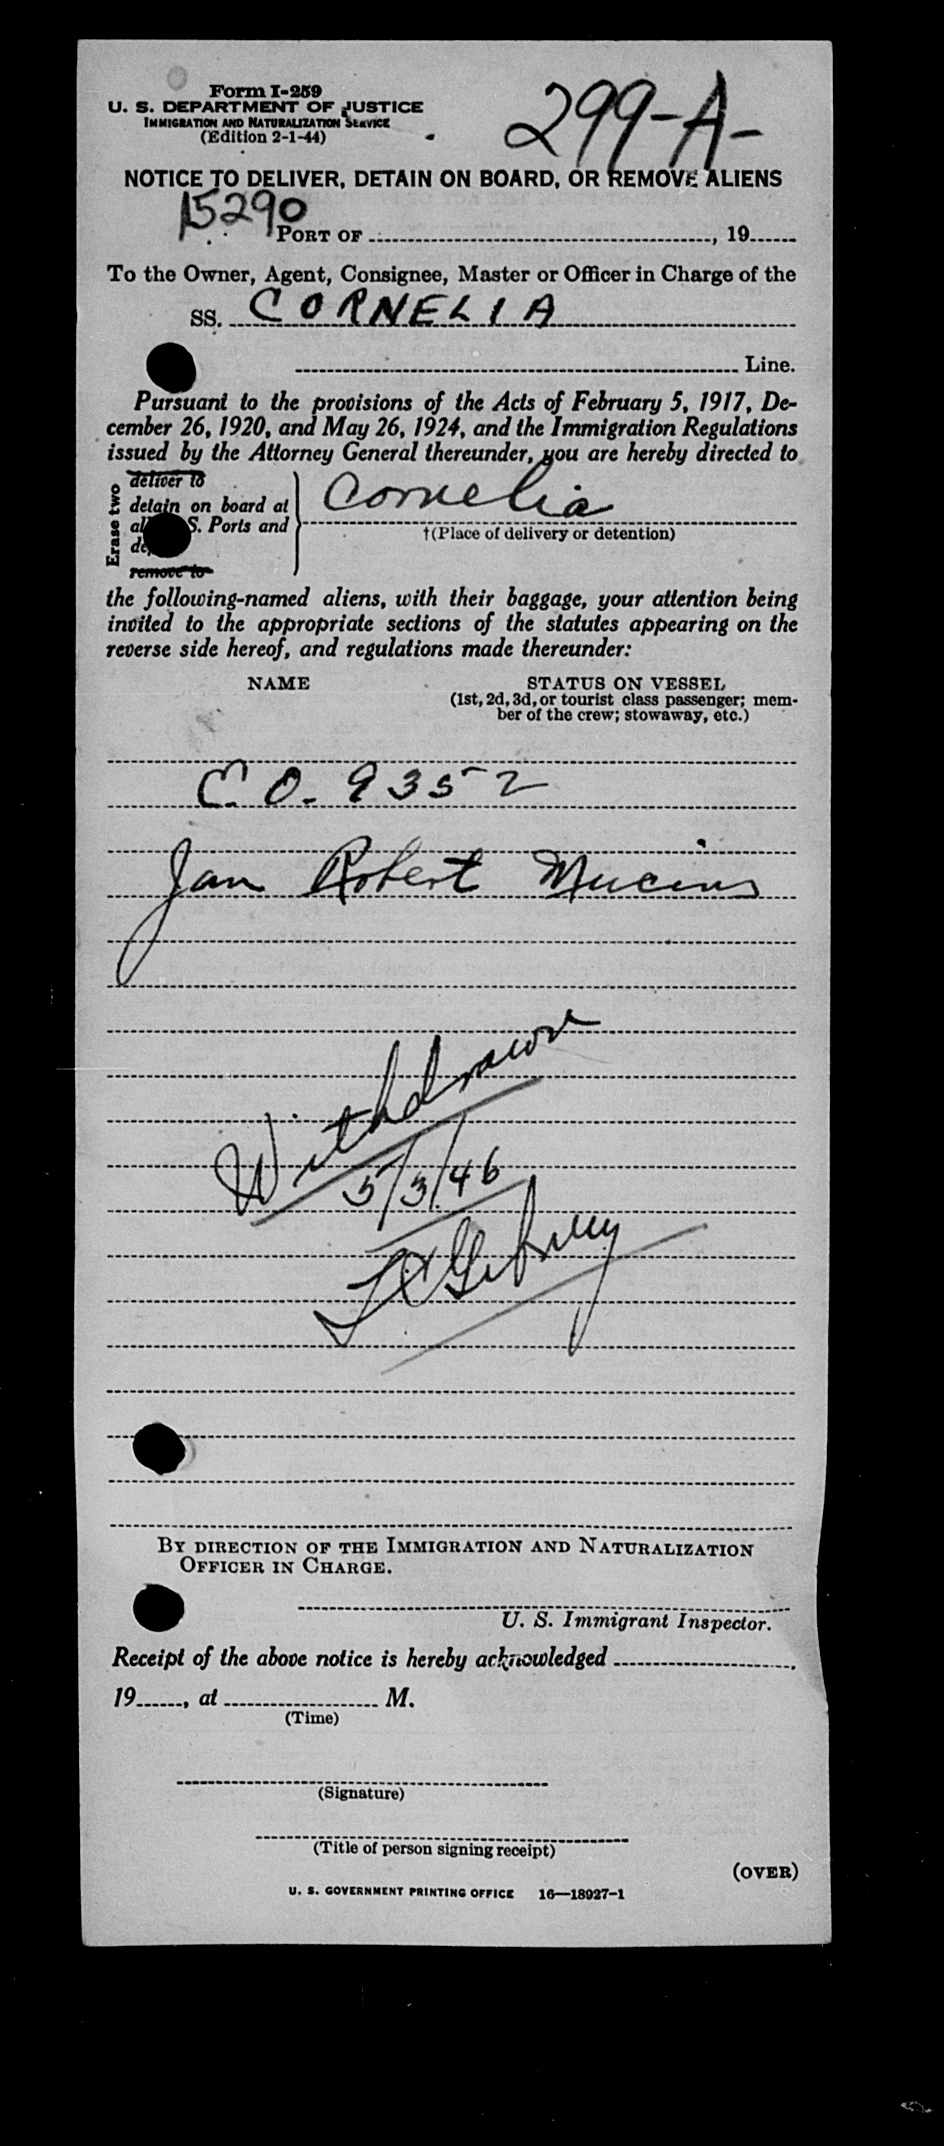 Form I-259
U. S. DEPARTMENT OF JUSTICE
IMMIGRATION AND NATURALIZATION SERVICE
(Edition 2-1-44)
299-A-
NOTICE TO DELIVER, DETAIN ON BOARD, OR REMOVE ALIENS
15290
PORT OF , 19
To the Owner, Agent, Consignee, Master or Officer in Charge of the
SS. CORNELIA
Line.
Pursuant to the provisions of the Acts of February 5, 1917, De-
cember 26, 1920, and May 26, 1924, and the Immigration Regulations
issued by the Attorney General thereunder, you are hereby directed to
Erase two
deliver to
detain on board at
al S. Ports and
de
remove to
Cornelia
†(Place of delivery or detention)
the following-named aliens, with their baggage, your attention being
invited to the appropriate sections of the statutes appearing on the
reverse side hereof, and regulations made thereunder:
NAME STATUS ON VESSEL
(1st, 2d, 3d, or tourist class passenger; mem-
ber of the crew; stowaway, etc.)
E.O. 9352
Jan Robert
Withdrawn
5/3/46
BY DIRECTION OF THE IMMIGRATION AND NATURALIZATION
OFFICER IN CHARGE.
U. S. Immigrant Inspector.
Receipt of the above notice is hereby acknowledged ,
19 , at M.
(Time)
(Signature)
(Title of person signing receipt)
(OVER)
U. S. GOVERNMENT PRINTING OFFICE 16—18927-1